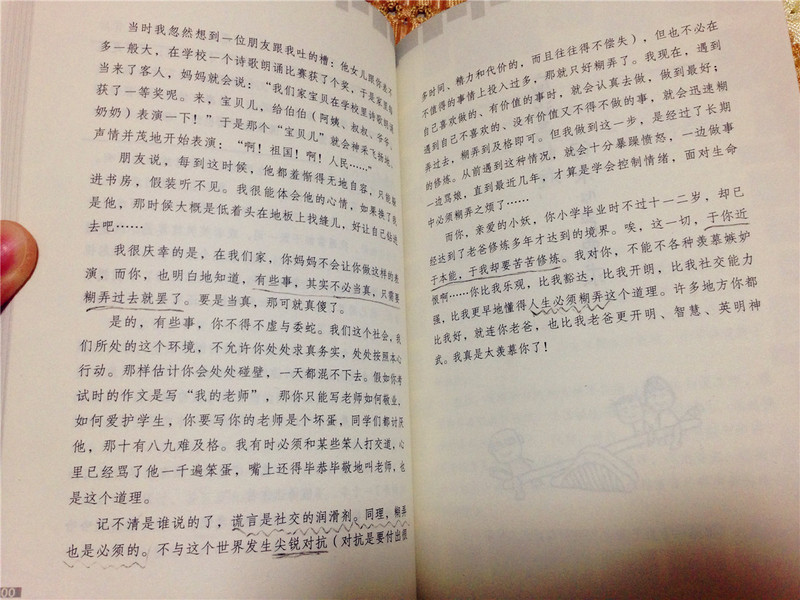 当时我忽然想到一位朋友跟我吐的槽：他女儿跟你差不
多一般大，在学校一个诗歌朗诵比赛获了个奖，于是家里每
当来了客人，妈妈就会说：“我们家宝贝在学校里诗歌朗诵
获了一等奖呢。来，宝贝儿，给伯伯（阿姨、叔叔、爷爷、
奶奶）表演一下！”于是那个“宝贝儿”就会神采飞扬地、
声情并茂地开始表演：“啊！祖国！啊！人民……”
朋友说，每到这时候，他都羞惭得无地自容，只能躲
进书房，假装听不见。我很能体会他的心情，如果换了我
是他，那时候大概是低着头在地板上找缝儿，好让自己钻进
去吧……
我很庆幸的是，在我们家，你妈妈不会让你做这样的表
演，而你，也明白地知道，有些事，其实不必当真，只需要
糊弄过去就罢了。要是当真，那可就真傻了。
是的，有些事，你不得不虚与委蛇。我们这个社会，我
们所处的这个环境，不允许你处处求真务实，处处按照本心
行动。那样估计你会处处碰壁，一天都混不下去。假如你考
试时的作文是写“我的老师”，那你只能写老师如何敬业，
如何爱护学生，你要写你的老师是个坏蛋，同学们都讨厌
他，那十有八九难及格。我有时必须和某些笨人打交道，心
里已经骂了他一千遍笨蛋，嘴上还得毕恭毕敬地叫老师，也
是这个道理。
记不清是谁说的了，谎言是社交的润滑剂。同理，糊弄
也是必须的。不与这个世界发生尖锐对抗（对抗是要付出很
00
多时间、精力和代价的，而且往往得不偿失），但也不必在
不值得的事情上投入过多，那就只好糊弄了。我现在，遇到
自己喜欢做的、有价值的事时，就会认真去做，做到最好；
遇到自己不喜欢的、没有价值又不得不做的事，就会迅速糊
弄过去，糊弄到及格即可。但我做到这一步，是经过了长期
的修炼。从前遇到这种情况，就会十分暴躁愤怒，一边做事
一边骂娘，直到最近几年，才算是学会控制情绪，面对生命
中必须糊弄之烦了……
而你，亲爱的小妖，你小学毕业时不过十一二岁，却已
经达到了老爸修炼多年才达到的境界。唉，这一切，于你近
于本能，于我却要苦苦修炼。我对你，不能不各种羡慕嫉妒
恨啊……你比我乐观，比我豁达，比我开朗，比我社交能力
强，比我更早地懂得人生必须糊弄这个道理。许多地方你都
比我好，就连你老爸，也比我老爸更开明、智慧、英明神
武。我真是太羡慕你了！